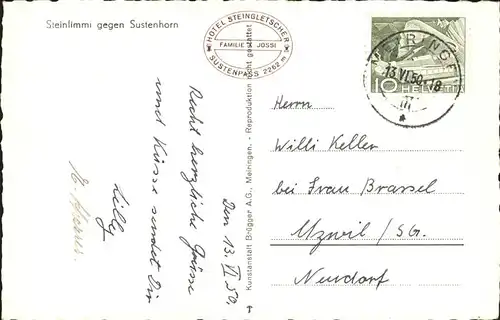 Steinlimmi gegen Sustenhorn
HOTEL STEINGLETSCHER
FAMILIE JOSSI
SUSTENPASS 2262 m
MEIRINGEN
13.VI.50.-18
10 HELVETIA
Den 13. VI. 50.
Recht herzliche Grüsse
und Küsse sendet Dir
Lilly
Kunstanstalt Brügger A.G., Meiringen. - Reproduktion nicht gestattet
Herrn
Willi Keller
bei Frau Brassel
Uzwil / SG.
Neudorf